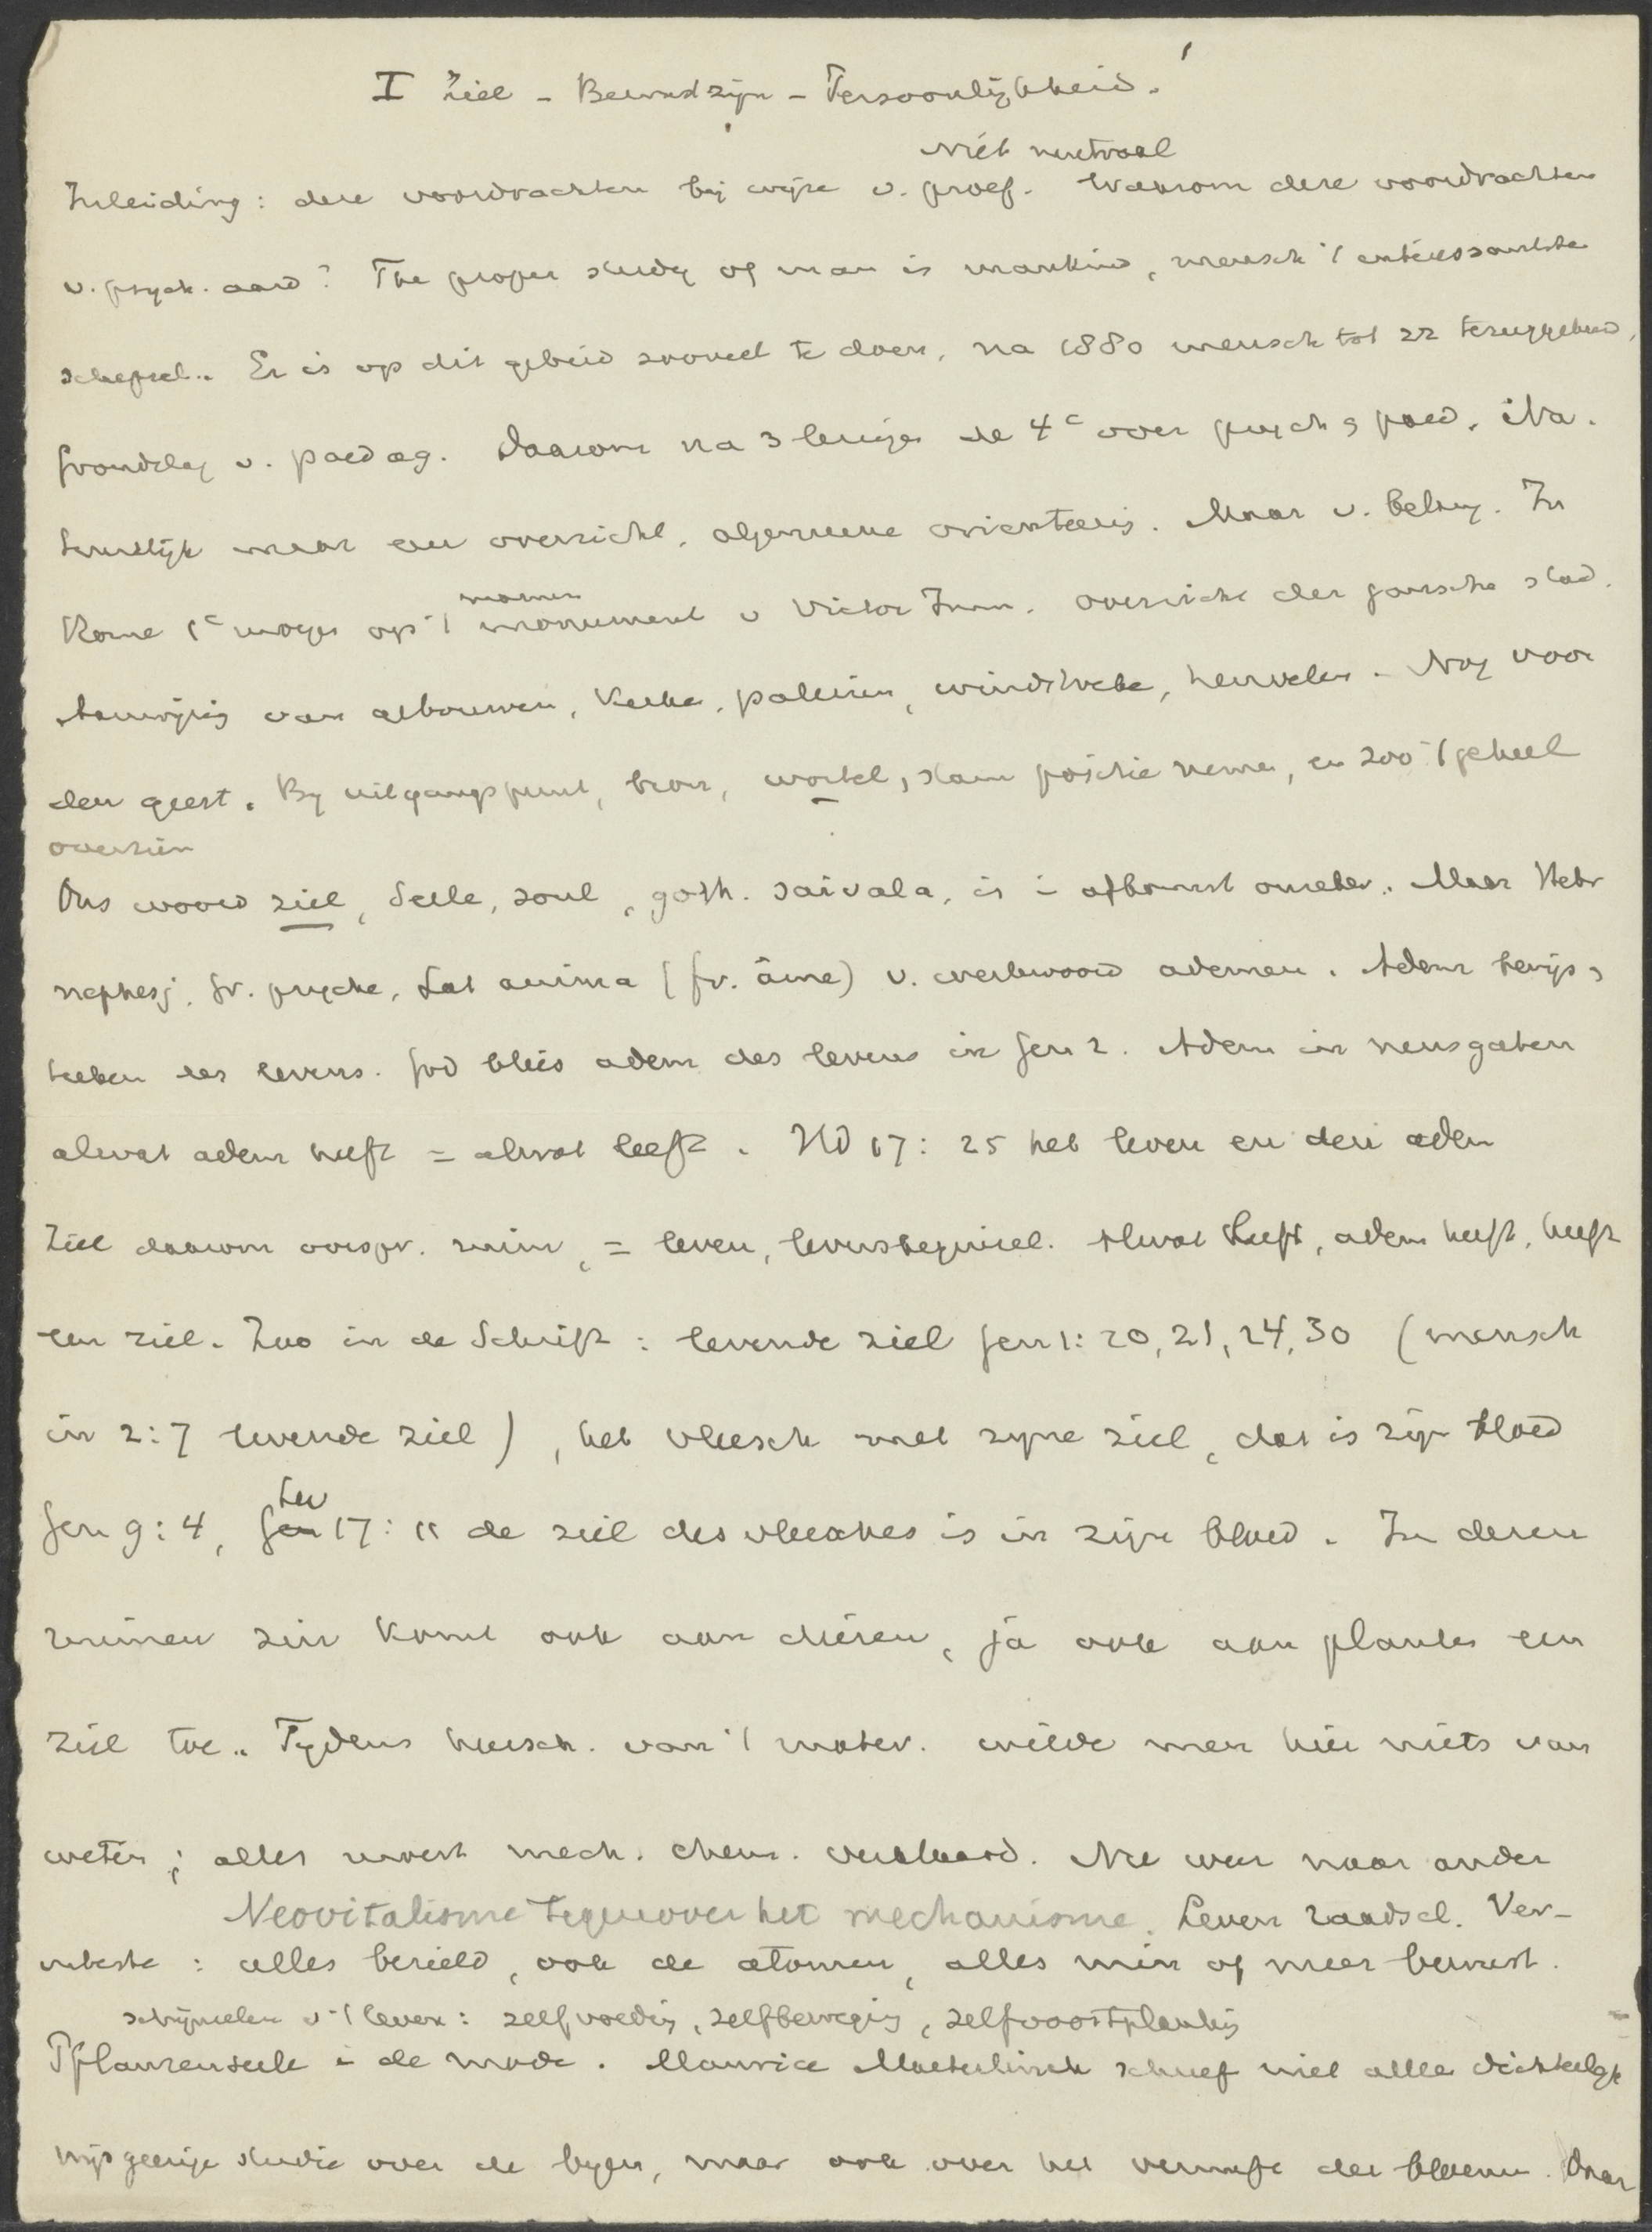 I Ziel - Bewustzijn - Persoonlijkheid.
Niet neutraal
Inleiding: deze voordrachten bij wijze v. proef. Waarom deze voordrachten
v. psych. aard? The proper study of man is mankind, mensch 't interessantste
schepsel. Er is op dit gebied zooveel te doen, na 1880 mensch tot zz teruggekeerd,
grondslag v. paedag. Daarom na 3 lezingen de 4e over psych & paed. Na-
tuurlijk maar een overzicht, algemeene orienteering. Maar v. belang. In
Rome 1e morgen op 't marmeren monument v Victor Imm. overzicht der gansche stad.
Aanwijzing van gebouwen, kerken, paleizen, windstreken, heuvelen. Nog voor
den geest. Bij uitgangspunt, bron, wortel, stam positie nemen, en zoo 't geheel
overzien
Ons woord ziel, Seele, soul, goth. saivala, is i afkomst onzeker. Maar Hebr
nephesj, Gr. psyche, Lat anima (fr. âme) v. werkwoord ademen. Adem bewijs,
teeken des levens. God blies adem des levens in Gen 2. Adem in neusgaten
alwat adem heeft = alwat leeft. Hd 17: 25 het leven en den adem
Ziel daarom oorspr. ruim, = leven, levensbeginsel. Alwat leeft, adem heeft, heeft
een ziel. Zoo in de Schrift: levende ziel Gen 1: 20, 21, 24, 30 (mensch
in 2:7 levende ziel), het vleesch met zijne ziel, dat is zijn bloed
Gen 9: 4, Gen Lev 17: 11 de ziel des vleesches is in zijn bloed. In dezen
ruimen zin komt ook aan dieren, ja ook aan planten een
ziel toe. Tijdens heersch. van 't mater. wilde men hier niets van
weten; alles werd mech. chem. verklaard. Nu weer naar ander
Neovitalisme tegenover het mechanisme. Leven raadsel. Ver-
uiterste: alles bezield, ook de atomen, alles min of meer bewust.
schijnselen v 't leven: zelfvoeding, zelfbeweging, zelfvoortplanting
Pflanzenseele i de mode. Maurice Maeterlinck schreef niet alleen dichterlijk
wijsgeerige studie over de bijen, maar ook over het vernuft der bloemen. Daar